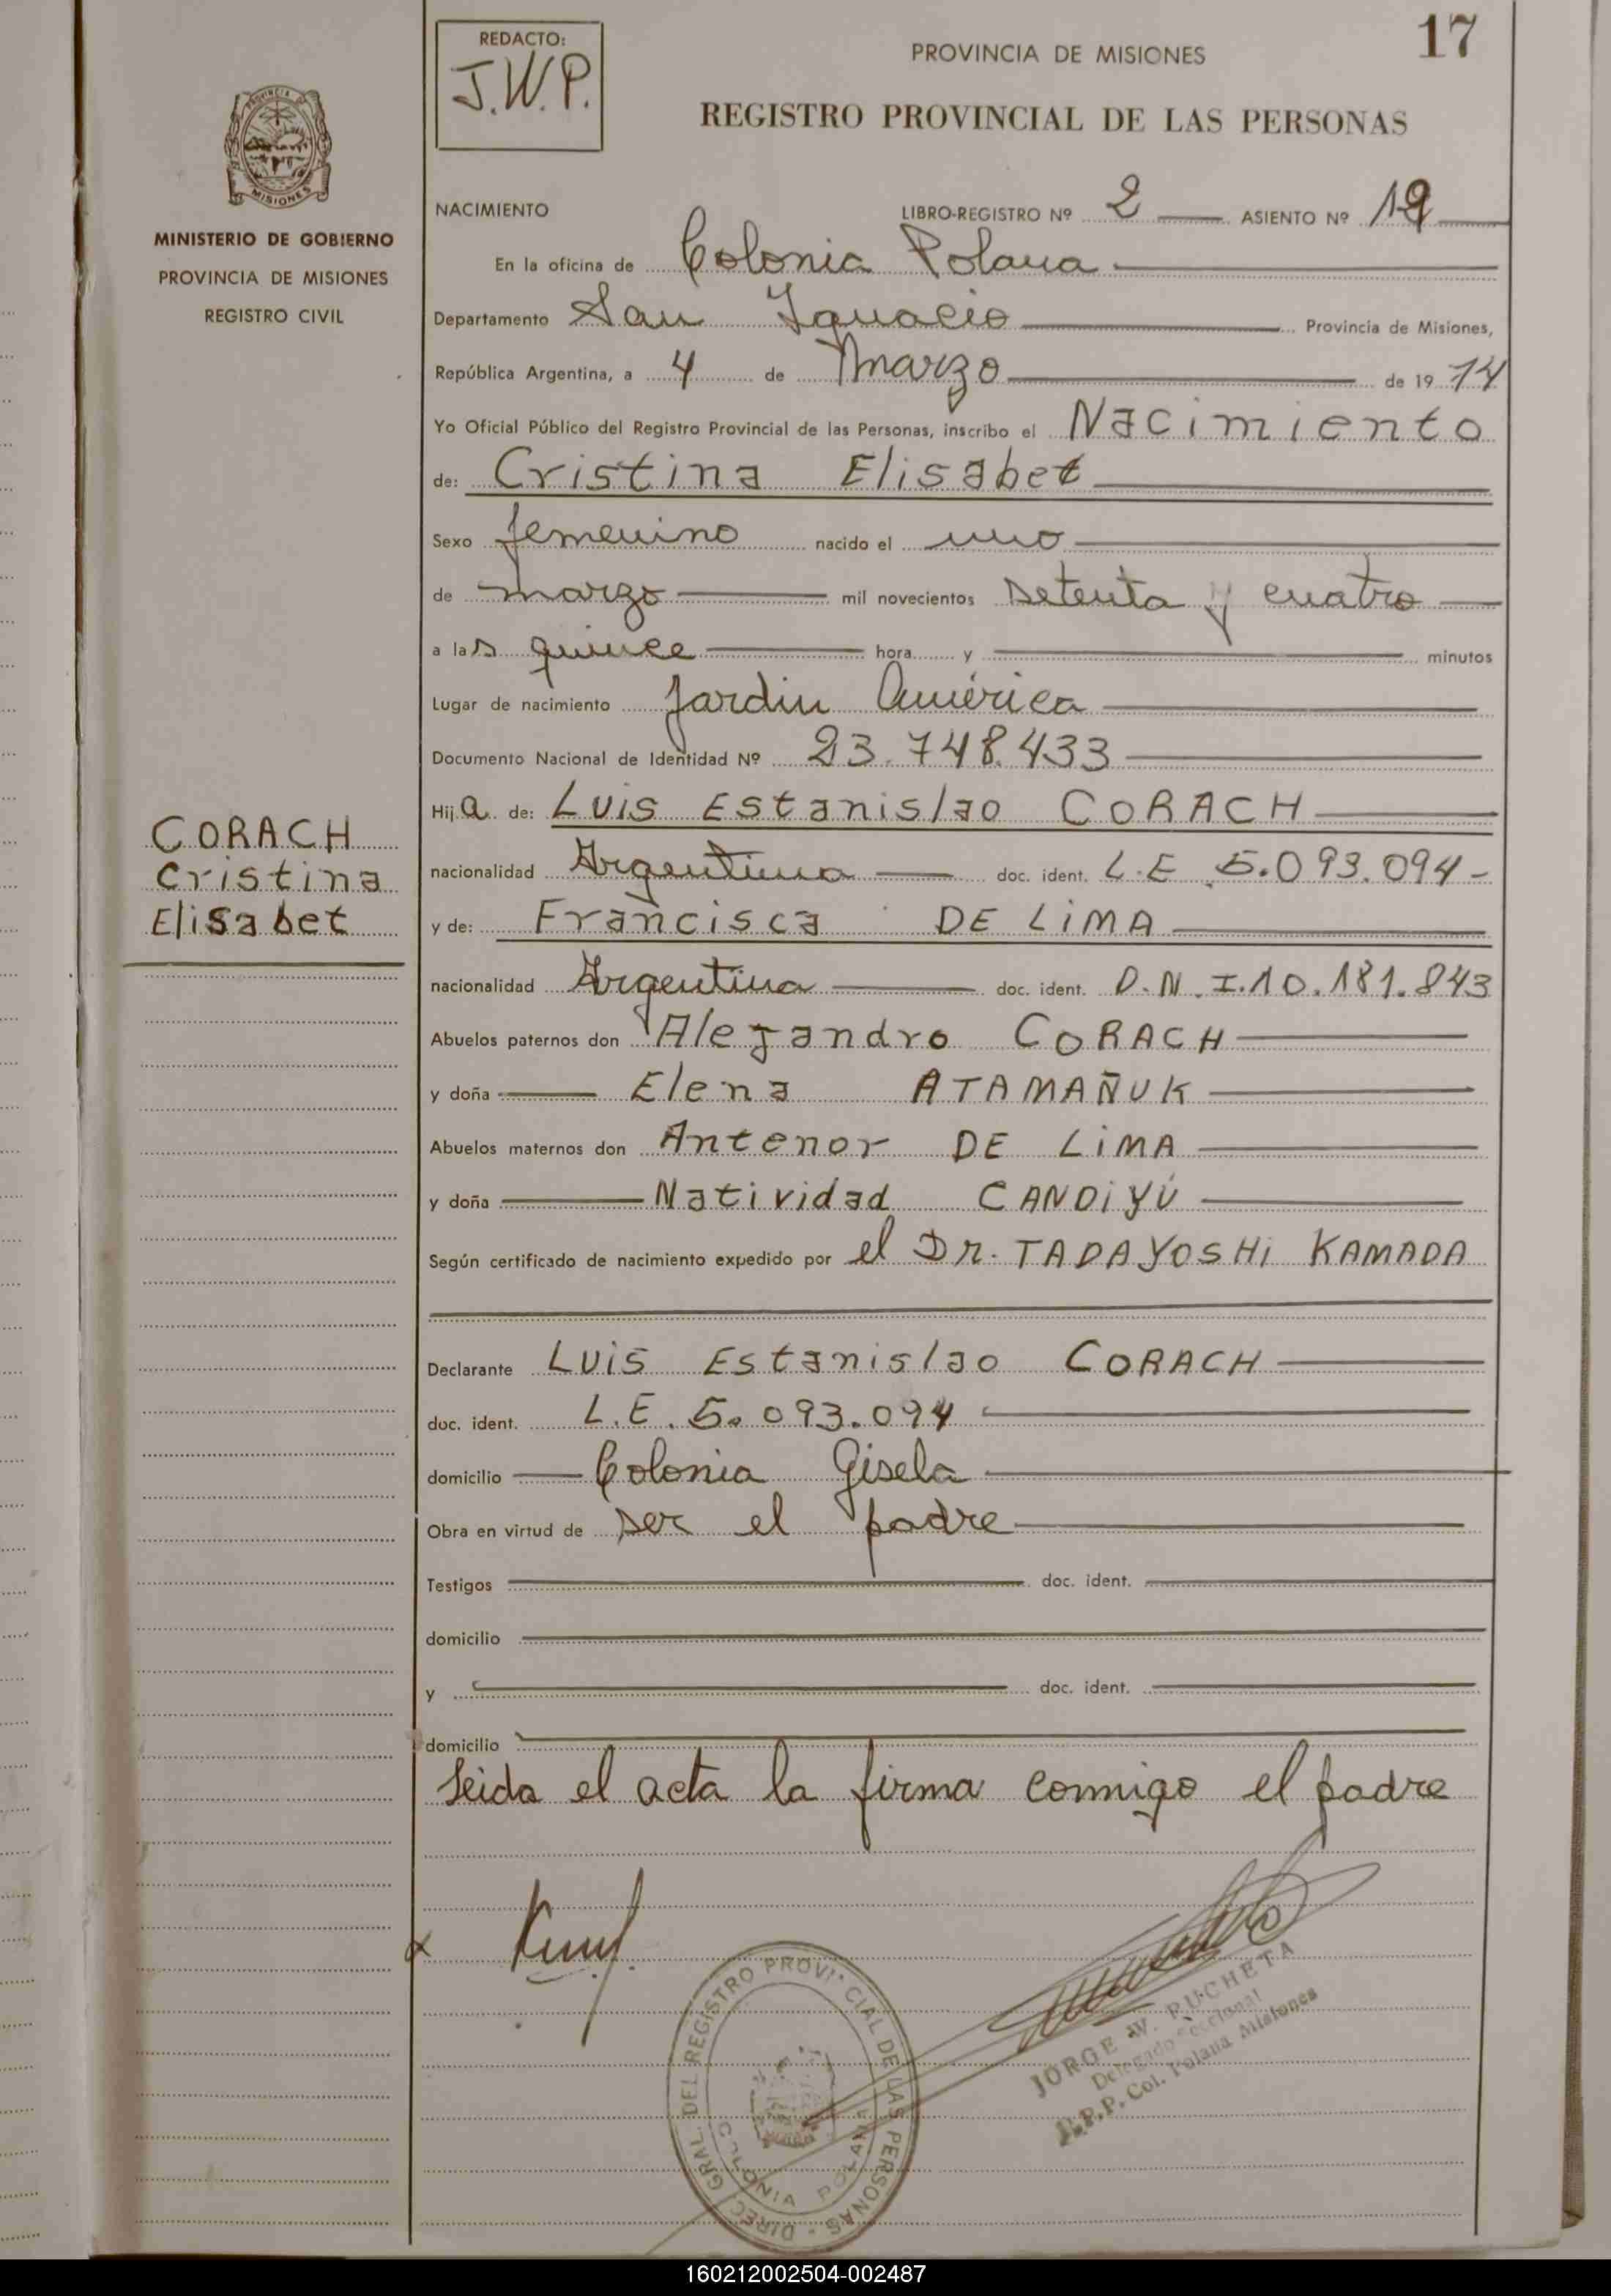 17
REDACTO:
J.W.P.
PROVINCIA DE MISIONES
REGISTRO PROVINCIAL DE LAS PERSONAS
PROVINCIA DE
MISIONES
MINISTERIO DE GOBIERNO
PROVINCIA DE MISIONES
REGISTRO CIVIL
CORACH
Cristina
Elisabet
NACIMIENTO LIBRO-REGISTRO Nº 2 ASIENTO Nº 19
En la oficina de Colonia Polana
Departamento San Ignacio Provincia de Misiones,
República Argentina, a 4 de Marzo de 19 74
Yo Oficial Público del Registro Provincial de las Personas, inscribo el Nacimiento
de: Cristina Elisabet
Sexo femenino nacido el uno
de marzo mil novecientos setenta y cuatro
a las quince hora y minutos
Lugar de nacimiento Jardin América
Documento Nacional de Identidad Nº 23.748.433
Hija de: Luis Estanislao CORACH
nacionalidad Argentina doc. ident. L.E 5.093.094-
y de: Francisca DE LIMA
nacionalidad Argentina doc. ident. D.N.I.10.181.843
Abuelos paternos don Alejandro CORACH
y doña Elena ATAMAÑUK
Abuelos maternos don Antenor DE LIMA
y doña Natividad CANDIYÚ
Según certificado de nacimiento expedido por el Dr. TADAYOSHI KAMADA
Declarante Luis Estanislao CORACH
doc. ident. L.E. 5.093.094
domicilio Colonia Gisela
Obra en virtud de ser el padre
Testigos doc. ident.
domicilio
y doc. ident.
domicilio
Leida el acta la firma conmigo el padre
DIREC. GRAL. DEL REGISTRO PROVINCIAL DE LAS PERSONAS
COLONIA POLANA
JORGE W. PUCHETA
Delegado Seccional
R.P.P. Col. Polana Misiones
160212002504-002487